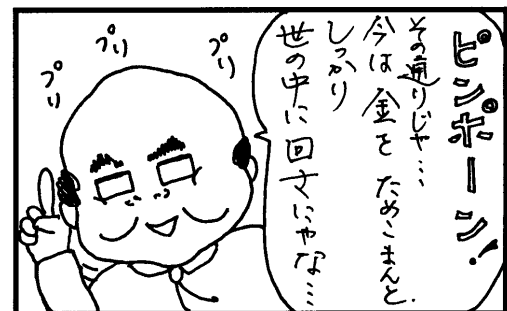 ピンポーン!
その通りじゃ…
今は金をためこまんと.
しっかり
世の中に回さにゃな…
プリ
プリ
プリ